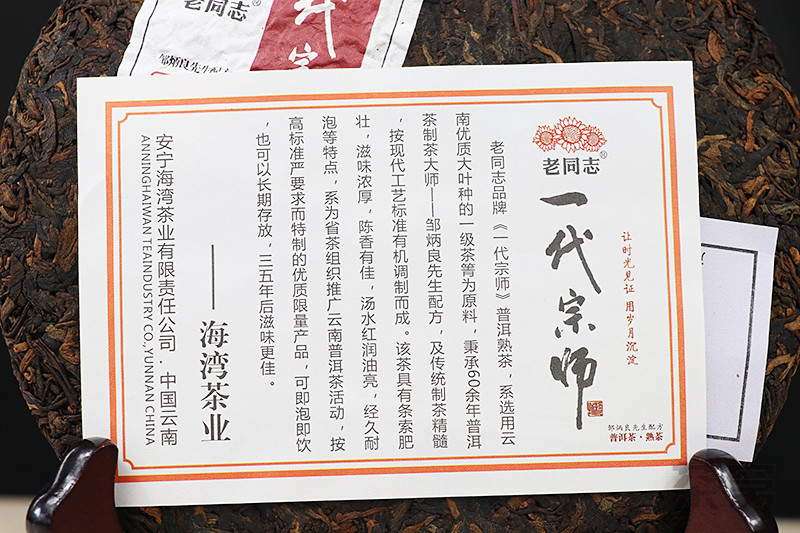 老同志®
一代宗师
邹炳良先生配
老同志®
一代宗师
让时光见证 用岁月沉淀
邹炳良先生配方
普洱·茶痴·茶
老同志品牌《一代宗师》普洱熟茶，系选用云
南优质大叶种的一级茶箐为原料，秉承60余年普洱
茶制茶大师——邹炳良先生配方，及传统制茶精髓
，按现代工艺标准有机调制而成。该茶具有条索肥
壮，滋味浓厚，陈香有佳，汤水红润油亮，经久耐
泡等特点，系为省茶组织推广云南普洱茶活动，按
高标准严要求而特制的优质限量产品，可即泡即饮
，也可以长期存放，三五年后滋味更佳。
——海湾茶业
安宁海湾茶业有限责任公司．中国云南
ANNINGHAIWAN TEAINDUSTRY CO.YUNNAN CHINA